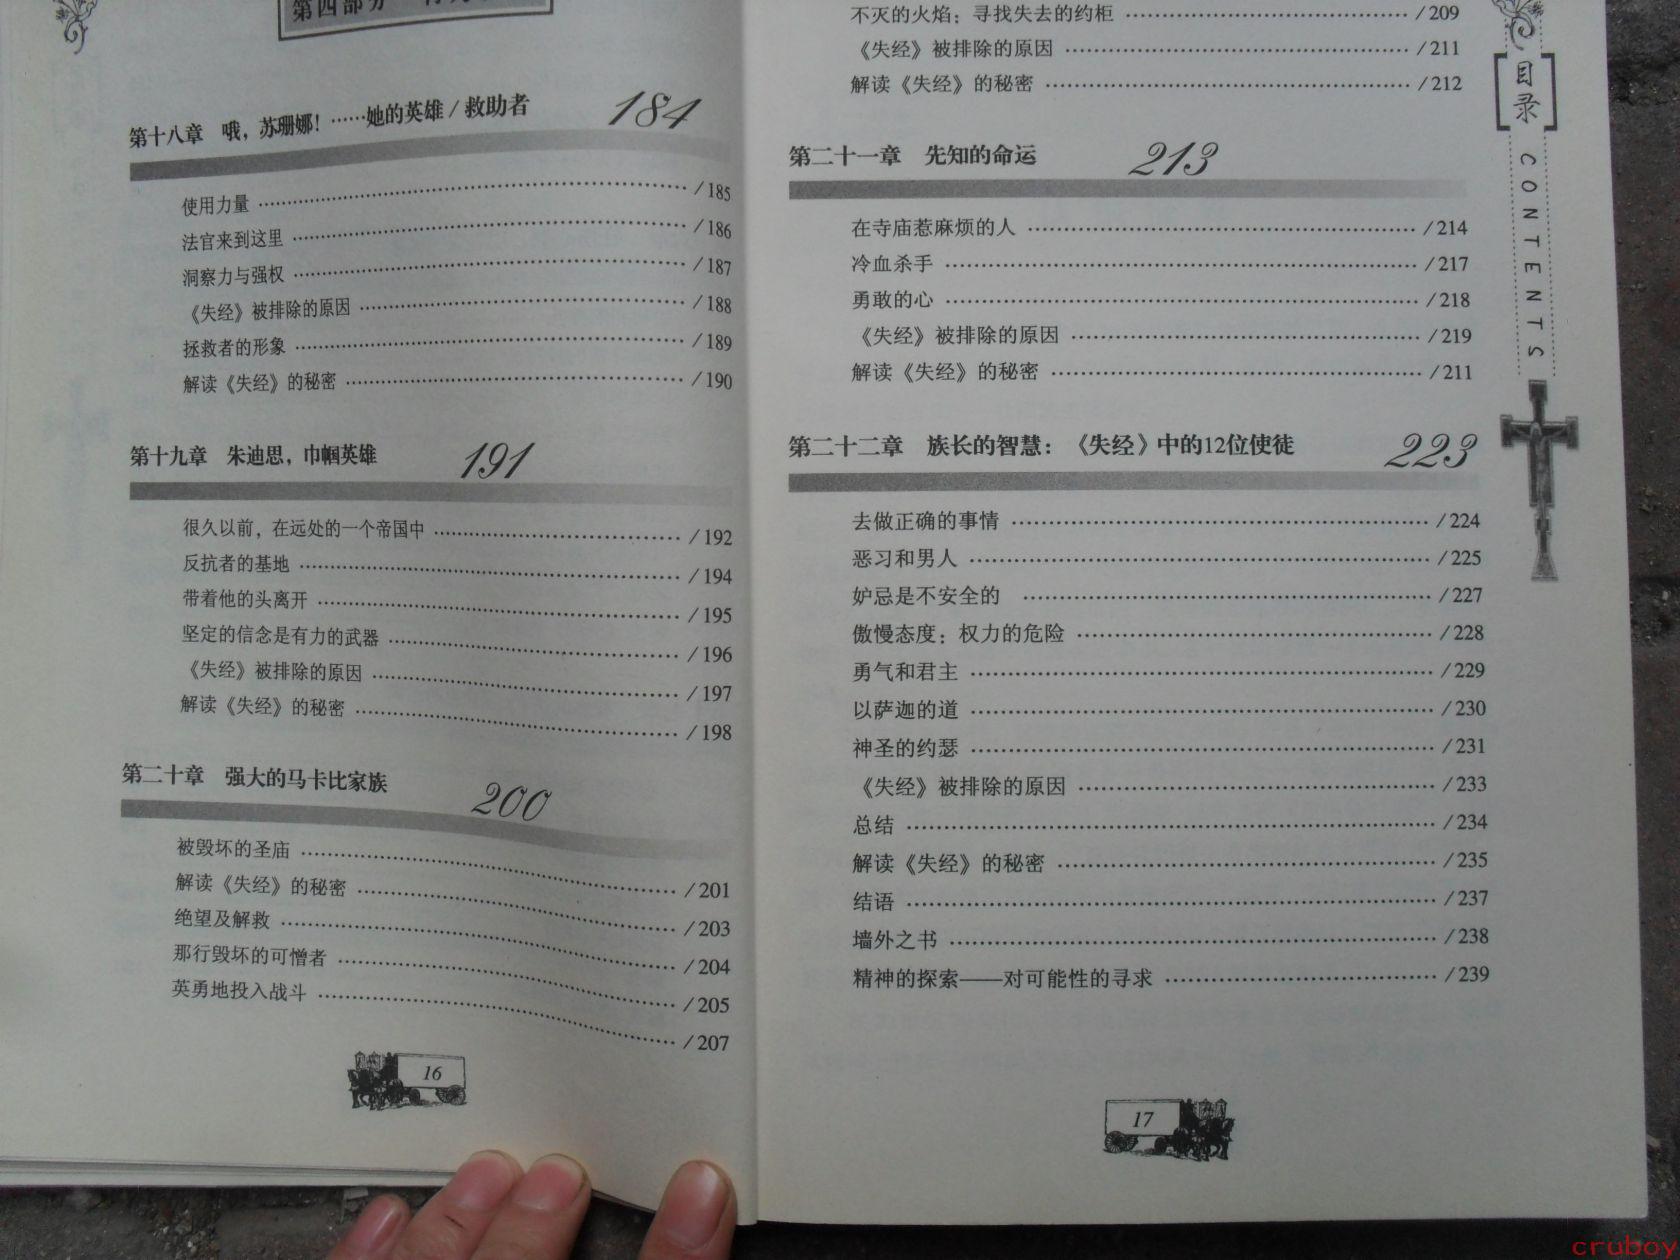 第四部分
第十八章 哦，苏珊娜！……她的英雄/救助者 184
使用力量 /185
法官来到这里 /186
洞察力与强权 /187
《失经》被排除的原因 /188
拯救者的形象 /189
解读《失经》的秘密 /190
第十九章 朱迪思，巾帼英雄 191
很久以前，在远处的一个帝国中 /192
反抗者的基地 /194
带着他的头离开 /195
坚定的信念是有力的武器 /196
《失经》被排除的原因 /197
解读《失经》的秘密 /198
第二十章 强大的马卡比家族 200
被毁坏的圣庙 /201
解读《失经》的秘密 /203
绝望及解救 /204
那行毁坏的可憎者 /205
英勇地投入战斗 /207
16
不灭的火焰：寻找失去的约柜 /209
《失经》被排除的原因 /211
解读《失经》的秘密 /212
第二十一章 先知的命运 213
在寺庙惹麻烦的人 /214
冷血杀手 /217
勇敢的心 /218
《失经》被排除的原因 /219
解读《失经》的秘密 /211
第二十二章 族长的智慧：《失经》中的12位使徒 223
去做正确的事情 /224
恶习和男人 /225
妒忌是不安全的 /227
傲慢态度：权力的危险 /228
勇气和君主 /229
以萨迦的道 /230
神圣的约瑟 /231
《失经》被排除的原因 /233
总结 /234
解读《失经》的秘密 /235
结语 /237
墙外之书 /238
精神的探索——对可能性的寻求 /239
17
目录
CONTENTS
cruboy